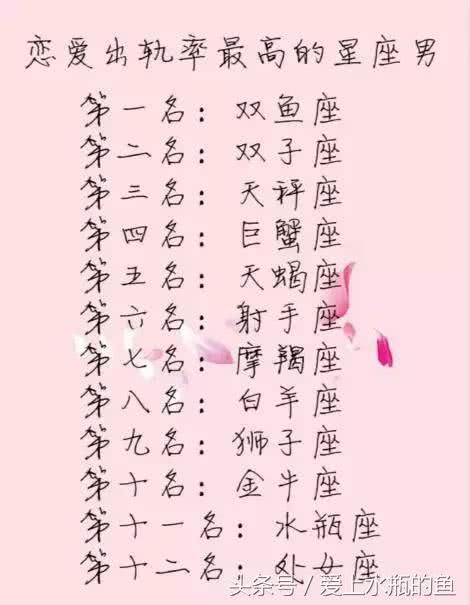 恋爱出轨率最高的星座男
第一名：双鱼座
第二名：双子座
第三名：天秤座
第四名：巨蟹座
第五名：天蝎座
第六名：射手座
第七名：摩羯座
第八名：白羊座
第九名：狮子座
第十名：金牛座
第十一名：水瓶座
第十二名：处女座
头条号／爱上水瓶的鱼